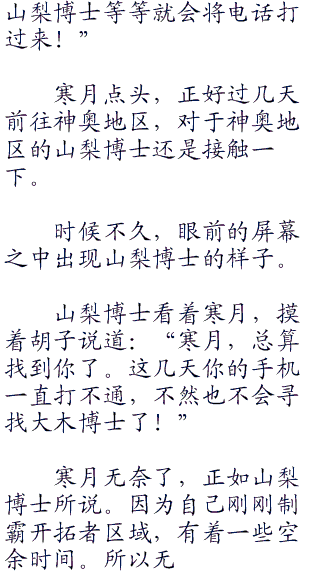 山梨博士等等就会将电话打
过来！”
寒月点头，正好过几天
前往神奥地区，对于神奥地
区的山梨博士还是接触一
下。
时候不久，眼前的屏幕
之中出现山梨博士的样子。
山梨博士看着寒月，摸
着胡子说道：“寒月，总算
找到你了。这几天你的手机
一直打不通，不然也不会寻
找大木博士了！”
寒月无奈了，正如山梨
博士所说。因为自己刚刚制
霸开拓者区域，有着一些空
余时间。所以无